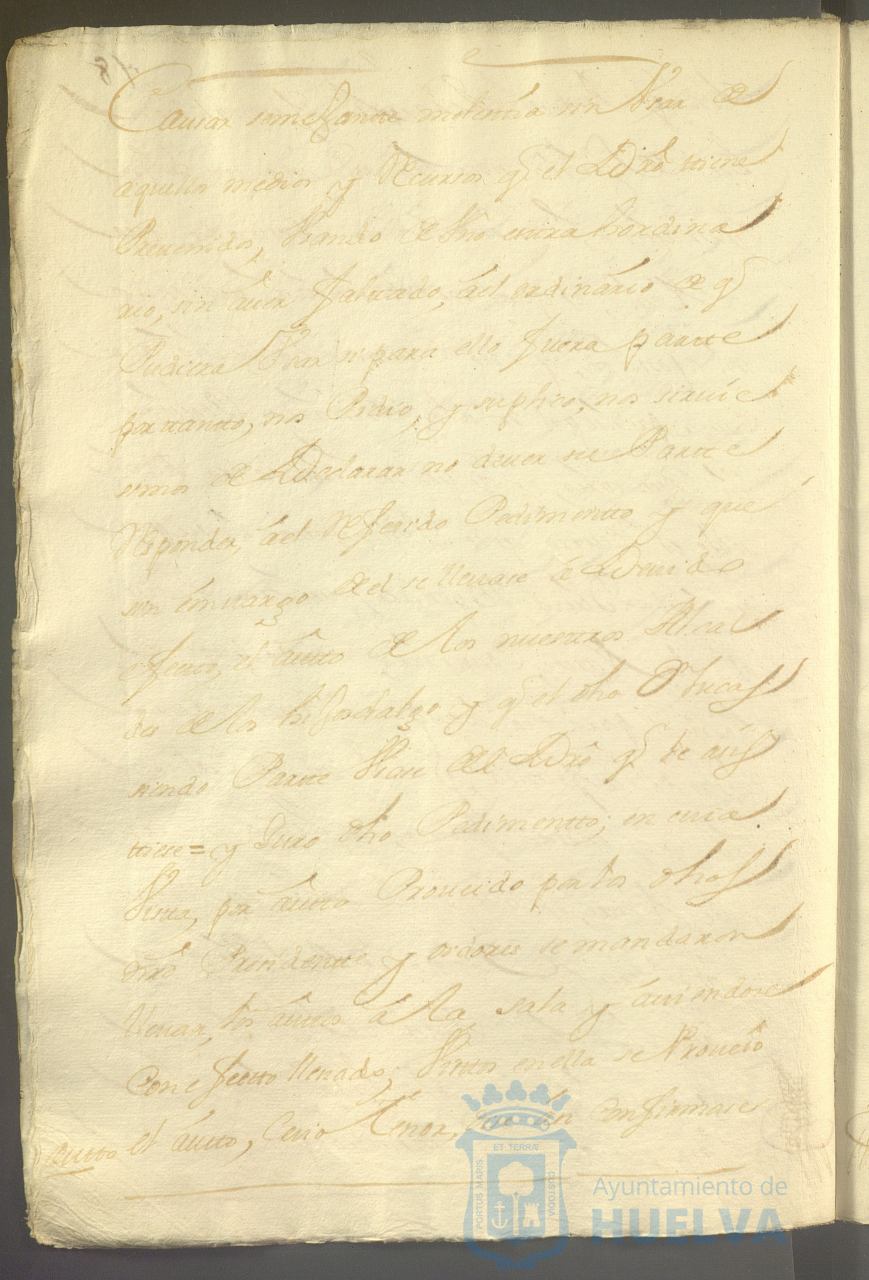 Causar semejante molestia sin Usar de
aquellos medios y Recursos q.e el Dro tiene
Prevenidos, Usando de Vno extrahordina
rio, sin aver faltado, ael ordinario de q.e
Pudiera Usar si para ello fuera parte
por tanto, nos Pidio, y suplico, nos sirvie
semos de Declarar no dever su Parte
Responder, ael Referido Pedimento y que
sin embargo de el se llevase a Devido
efecto, el autto de los nuestros Alcal
des de los hijosdalgo y q.e el dho Dn Lucas
siendo Parte Usase del Dro q.e le asis
tiese = y Juro dho Pedimentto; en cuia
Vista, por autto Proveido por los dhos
nro Presidente y oidores se mandaron
llevar, los autos a la sala y aviendose
Con efectto llevado, Vistos en ella se Proveio
autto el autto, Cuio tenor, es confirmase
ET TERRÆ
PORTUS MARIS
CUSTODIA
Ayuntamiento de
HUELVA